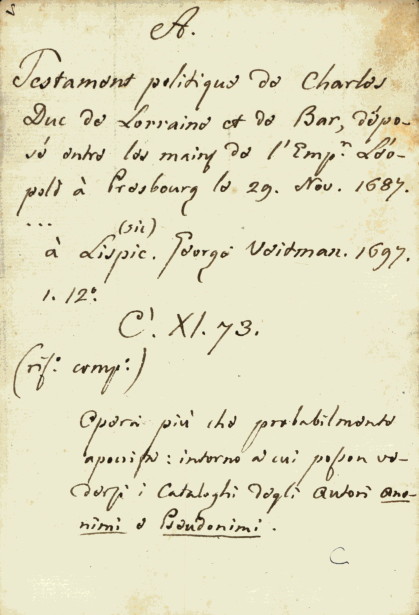 A.
Testament politique de Charles
Duc de Lorraine et de Bar, dépo-
sé entre les mains de l'Emp.r Léo-
pold à Presbourg le 29. Nov. 1687.
...
(sic)
à Lispic. George Veitman. 1697.
1. 12°.
C'. XI. 73.
(ris.° comp.°)
Opera più che probabilmente
apocrifa: intorno a cui posson ve-
dersi i Cataloghi degli autori ano-
nimi e Pseudonimi.
C